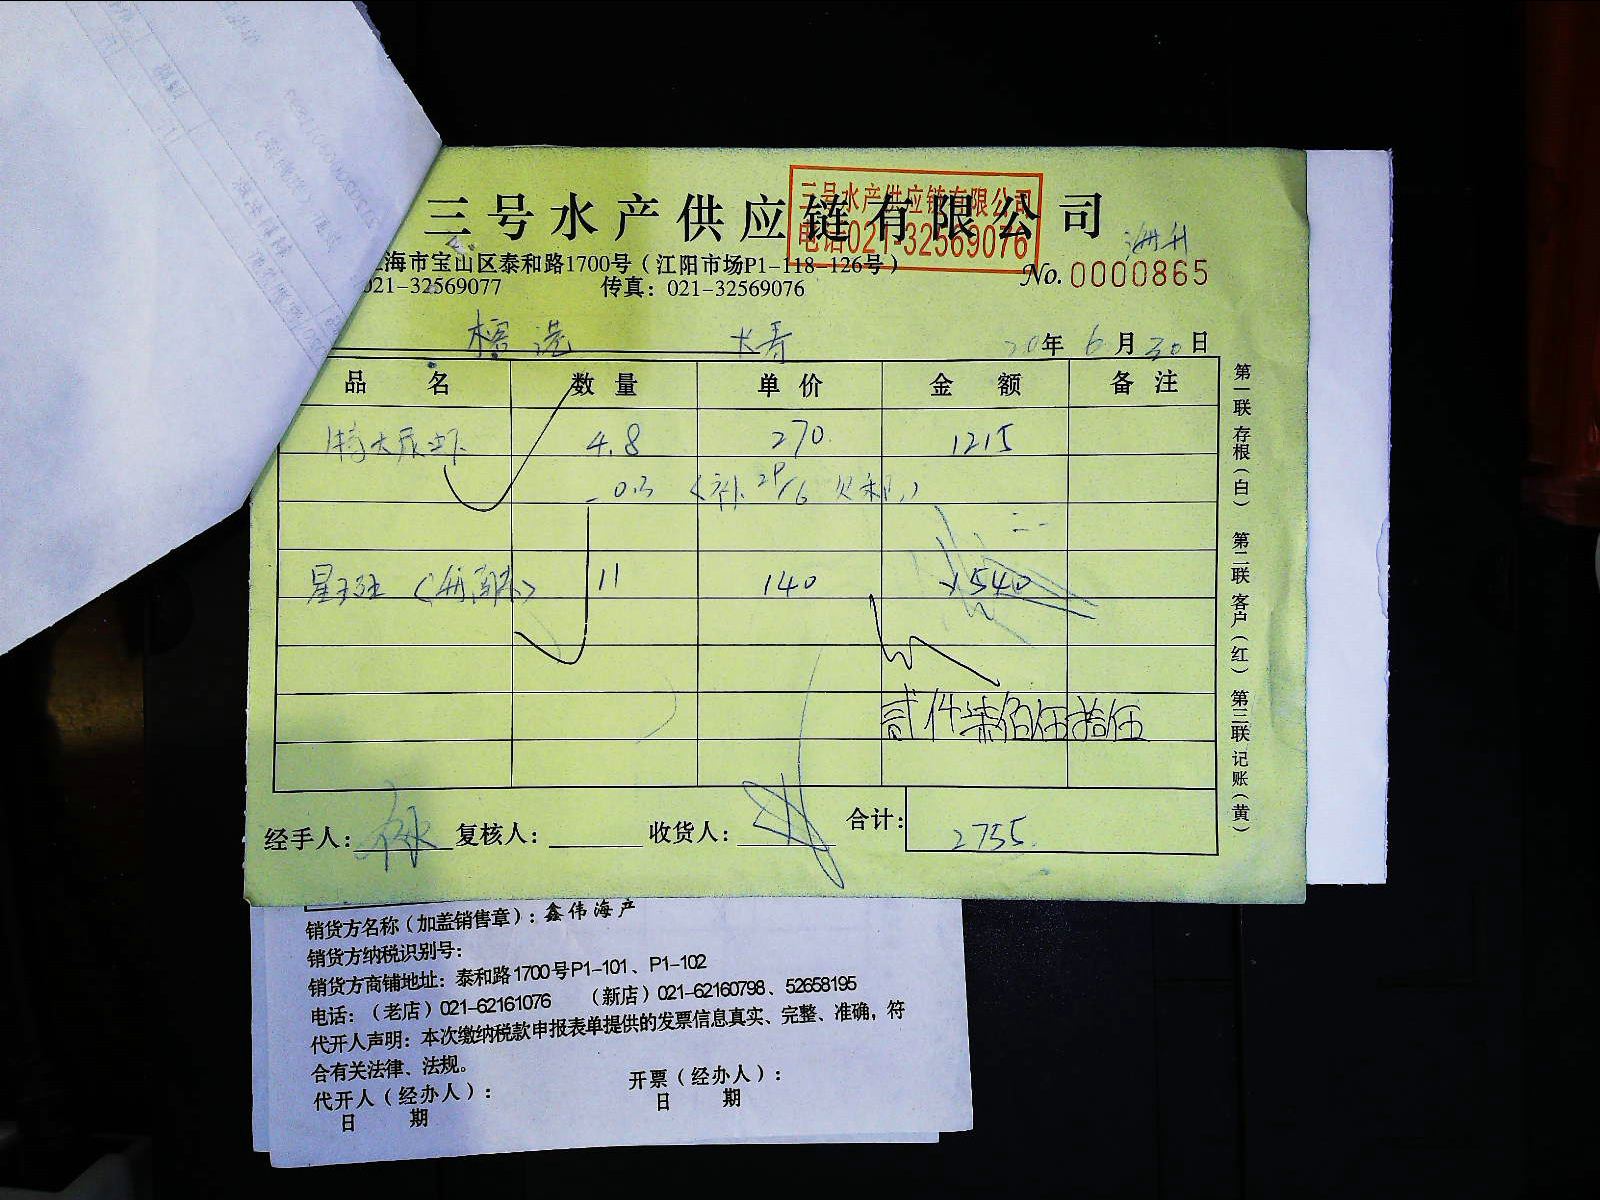 三号水产供应链有限公司
三号水产供应链有限公司
电话021-32569076
海市宝山区泰和路1700号（江阳市场P1-118-126号）
021-32569077 传真：021-32569076
No. 0000865
20年6月30日
品名 数量 单价 金额 备注
4.8 270 1215
-0.3
11 140 1540
贰仟柒佰伍拾伍
经手人： 复核人： 收货人： 合计： 2755
第一联 存根（白） 第二联 客户（红） 第三联 记账（黄）
销货方名称（加盖销售章）：鑫伟海产
销货方纳税识别号：
销货方商铺地址：泰和路1700号P1-101、P1-102
电话：（老店）021-62161076 （新店）021-62160798、52658195
代开人声明：本次缴纳税款申报表单提供的发票信息真实、完整、准确，符
合有关法律、法规。
代开人（经办人）： 开票（经办人）：
日期 日期